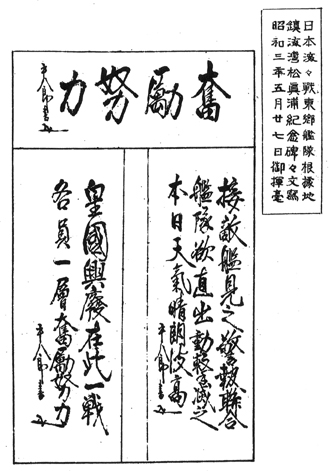 日本海々戰東鄉艦隊根據地
鎭海灣松眞浦紀念碑々文寫
昭和三年五月廿七日御揮毫
奮勵努力
平八郎書
接敵艦見之警報聯合
艦隊欲直出動擊滅之
本日天氣晴朗波高
平八郎書
皇國興廢在此一戰
各員一層奮勵努力
平八郎書